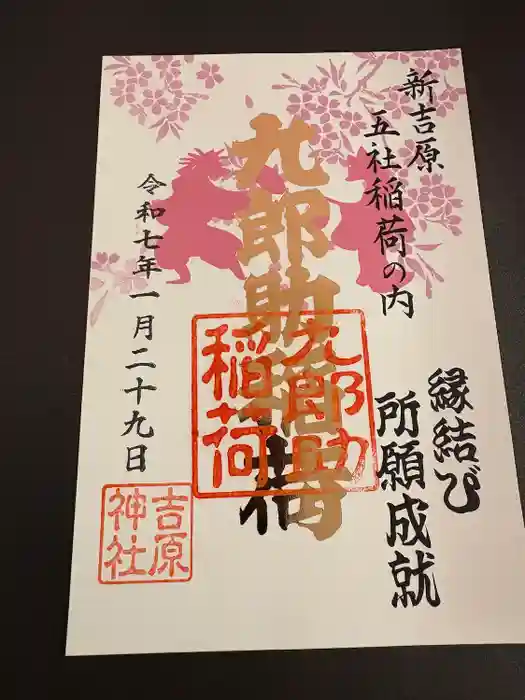 新吉原
五社稲荷の内
縁結び
所願成就
九郎助稲荷
九郎助
稲荷
令和七年一月二十九日
吉原
神社